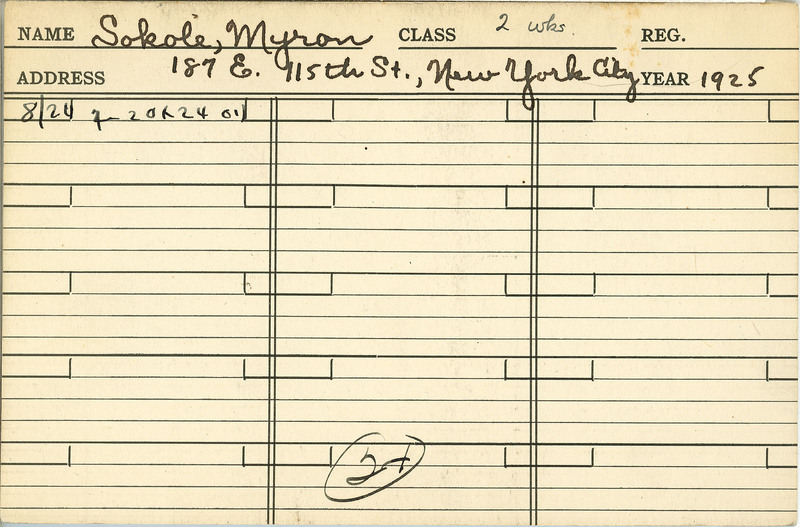 NAME Sokole, Myron CLASS 2 wks. REG.
ADDRESS 187 E. 115th St., New York City YEAR 1925
8/24 20 24